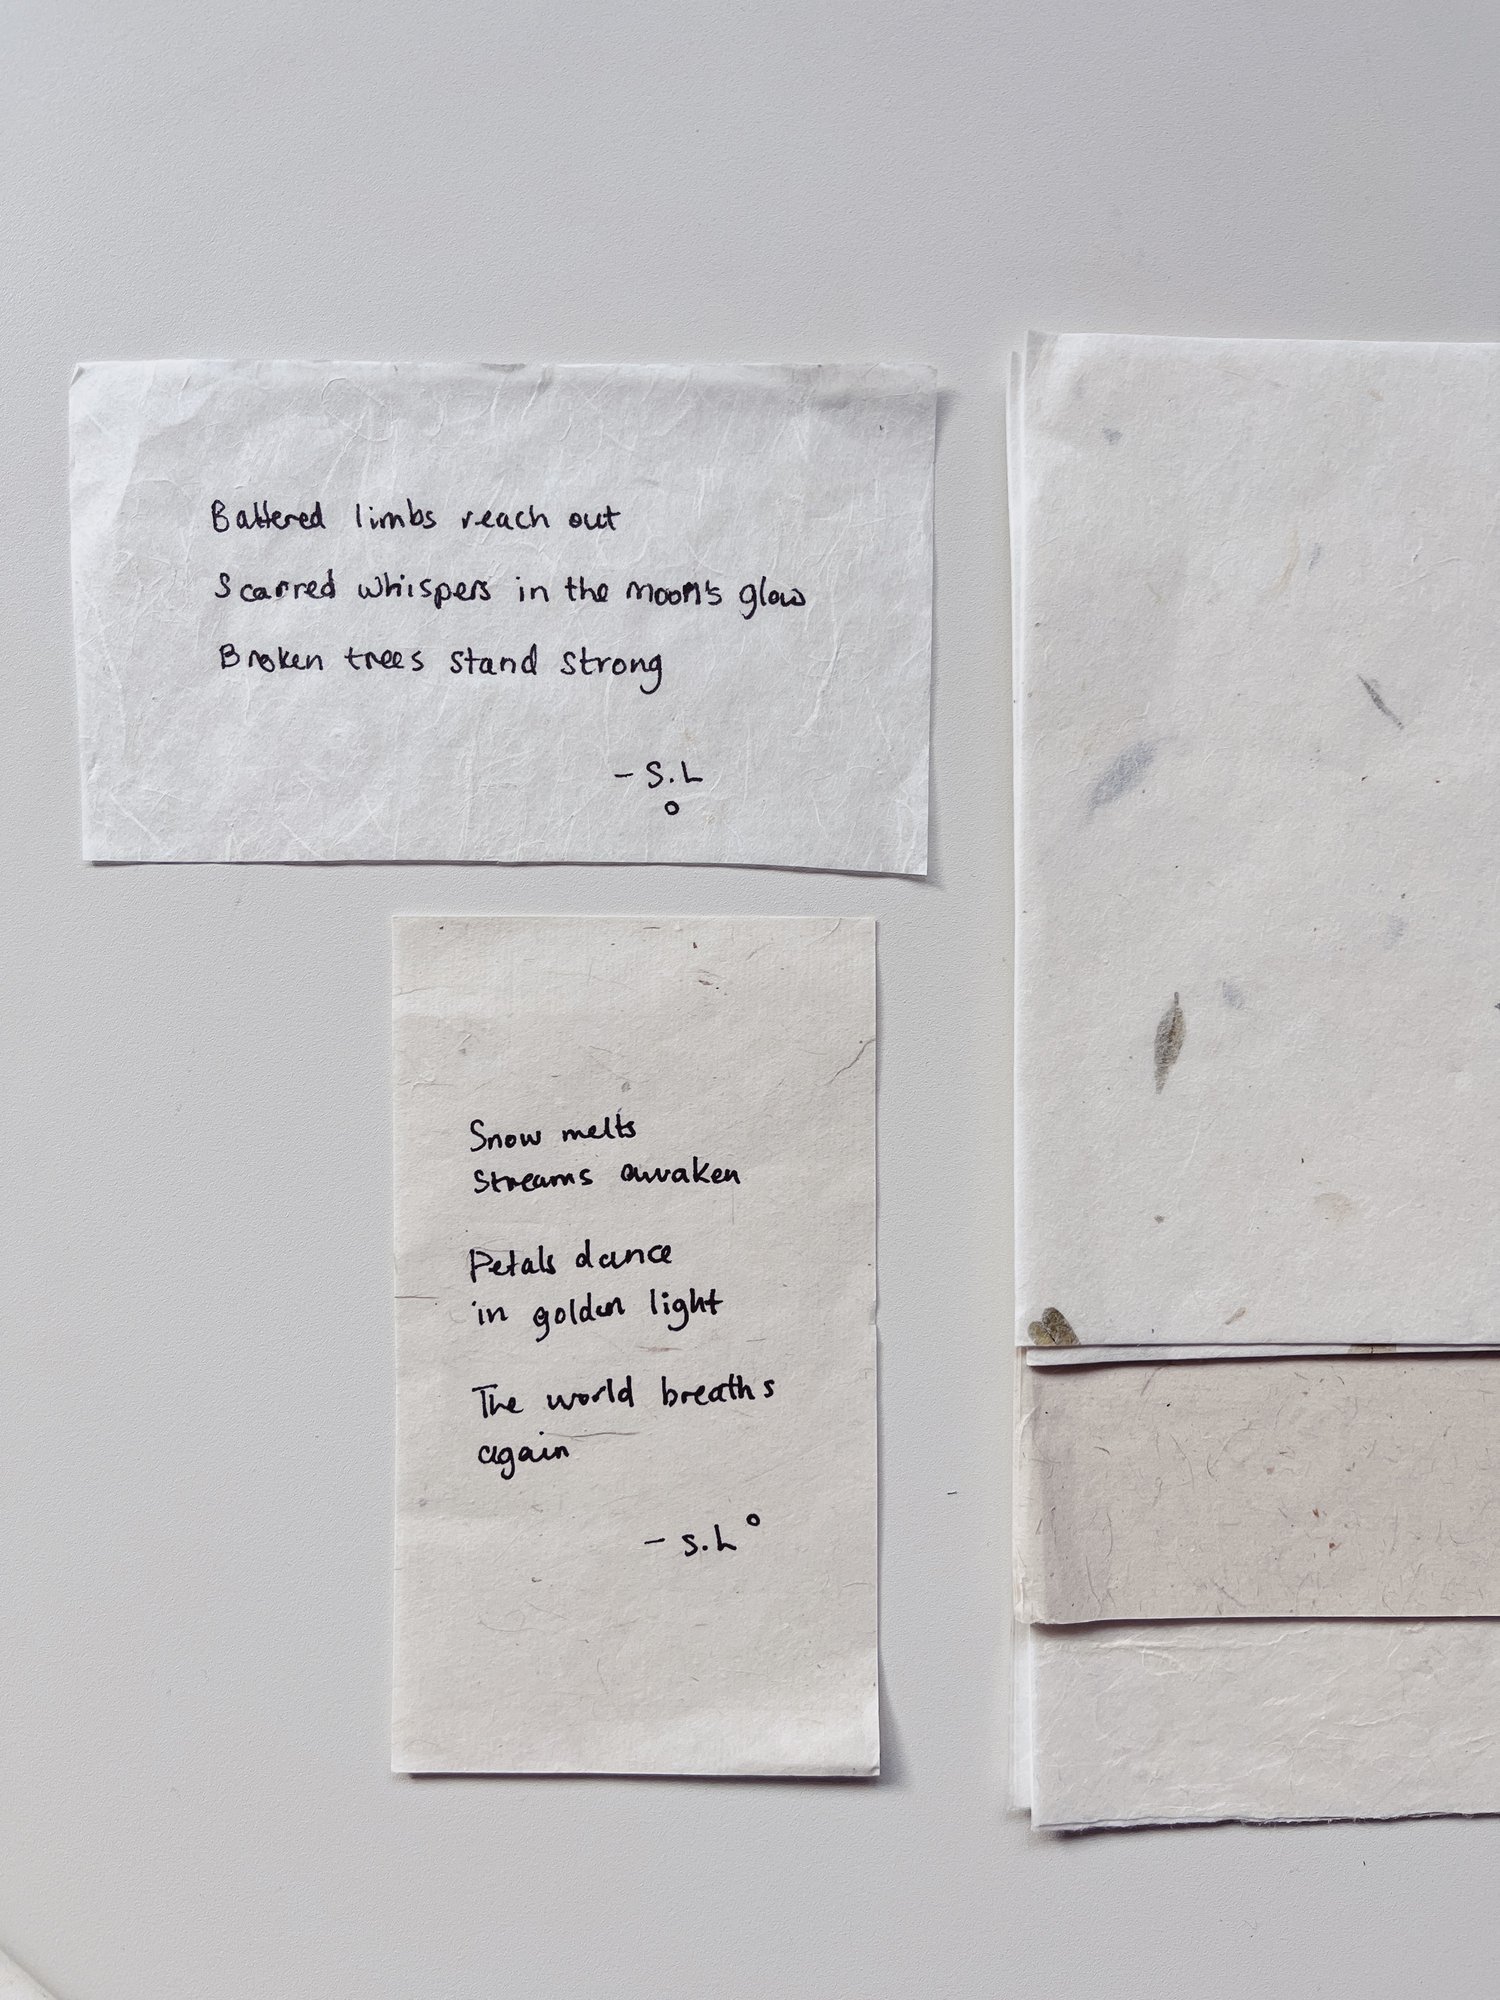 Battered limbs reach out
Scarred whispers in the moon's glow
Broken trees stand strong
- S.L
Snow melts
Streams awaken
Petals dance
in golden light
The world breaths
again
- S.L